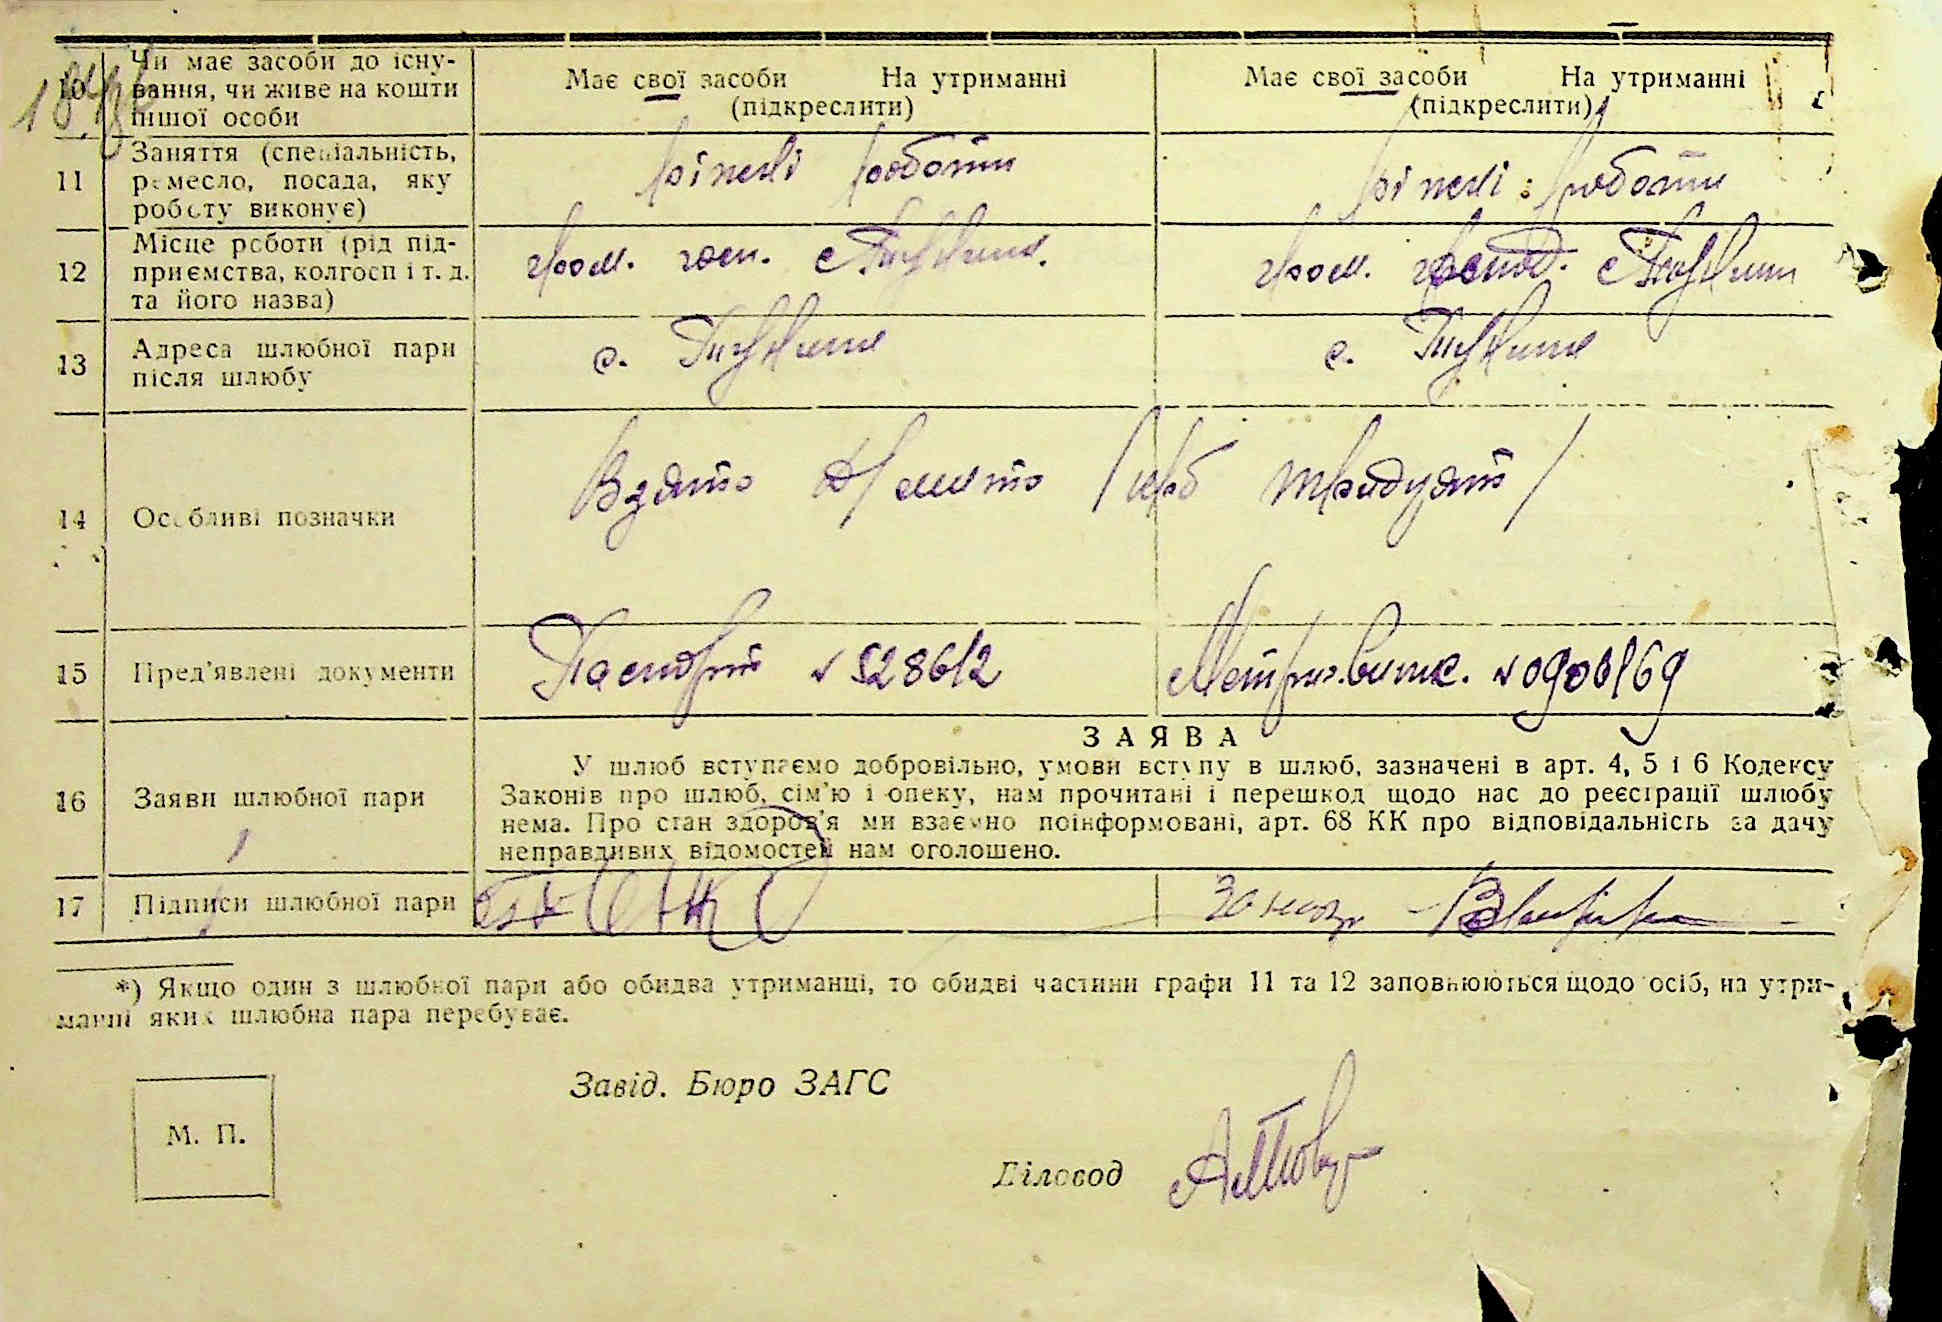 10 Чи має засоби до існу-
вання, чи живе на кошти
іншої особи
Має свої засоби На утриманні
(підкреслити)
Має свої засоби На утриманні
(підкреслити)
11 Заняття (спеціальність,
ремесло, посада, яку
роботу виконує)
різні роботи
різні роботи
12 Місце роботи (рід під-
приємства, колгосп і т. д.
та його назва)
гром. гос.
гром. господ.
13 Адреса шлюбної пари
після шлюбу
с.
с.
14 Особливі позначки
Взято (крб тридцять)
15 Пред'явлені документи
Паспорт № 528612
Метрич. витяг. №
16 Заяви шлюбної пари
ЗАЯВА
У шлюб вступаємо добровільно, умови вступу в шлюб, зазначені в арт. 4, 5 і 6 Кодексу
Законів про шлюб, сім'ю і опеку, нам прочитані і перешкод щодо нас до реєстрації шлюбу
нема. Про стан здоров'я ми взаємно поінформовані, арт. 68 КК про відповідальність за дачу
неправдивих відомостей нам оголошено.
17 Підписи шлюбної пари
*) Якщо один з шлюбної пари або обидва утриманці, то обидві частини графи 11 та 12 заповнюються щодо осіб, на утри-
манні яких шлюбна пара перебуває.
Завід. Бюро ЗАГС
М. П.
Діловод